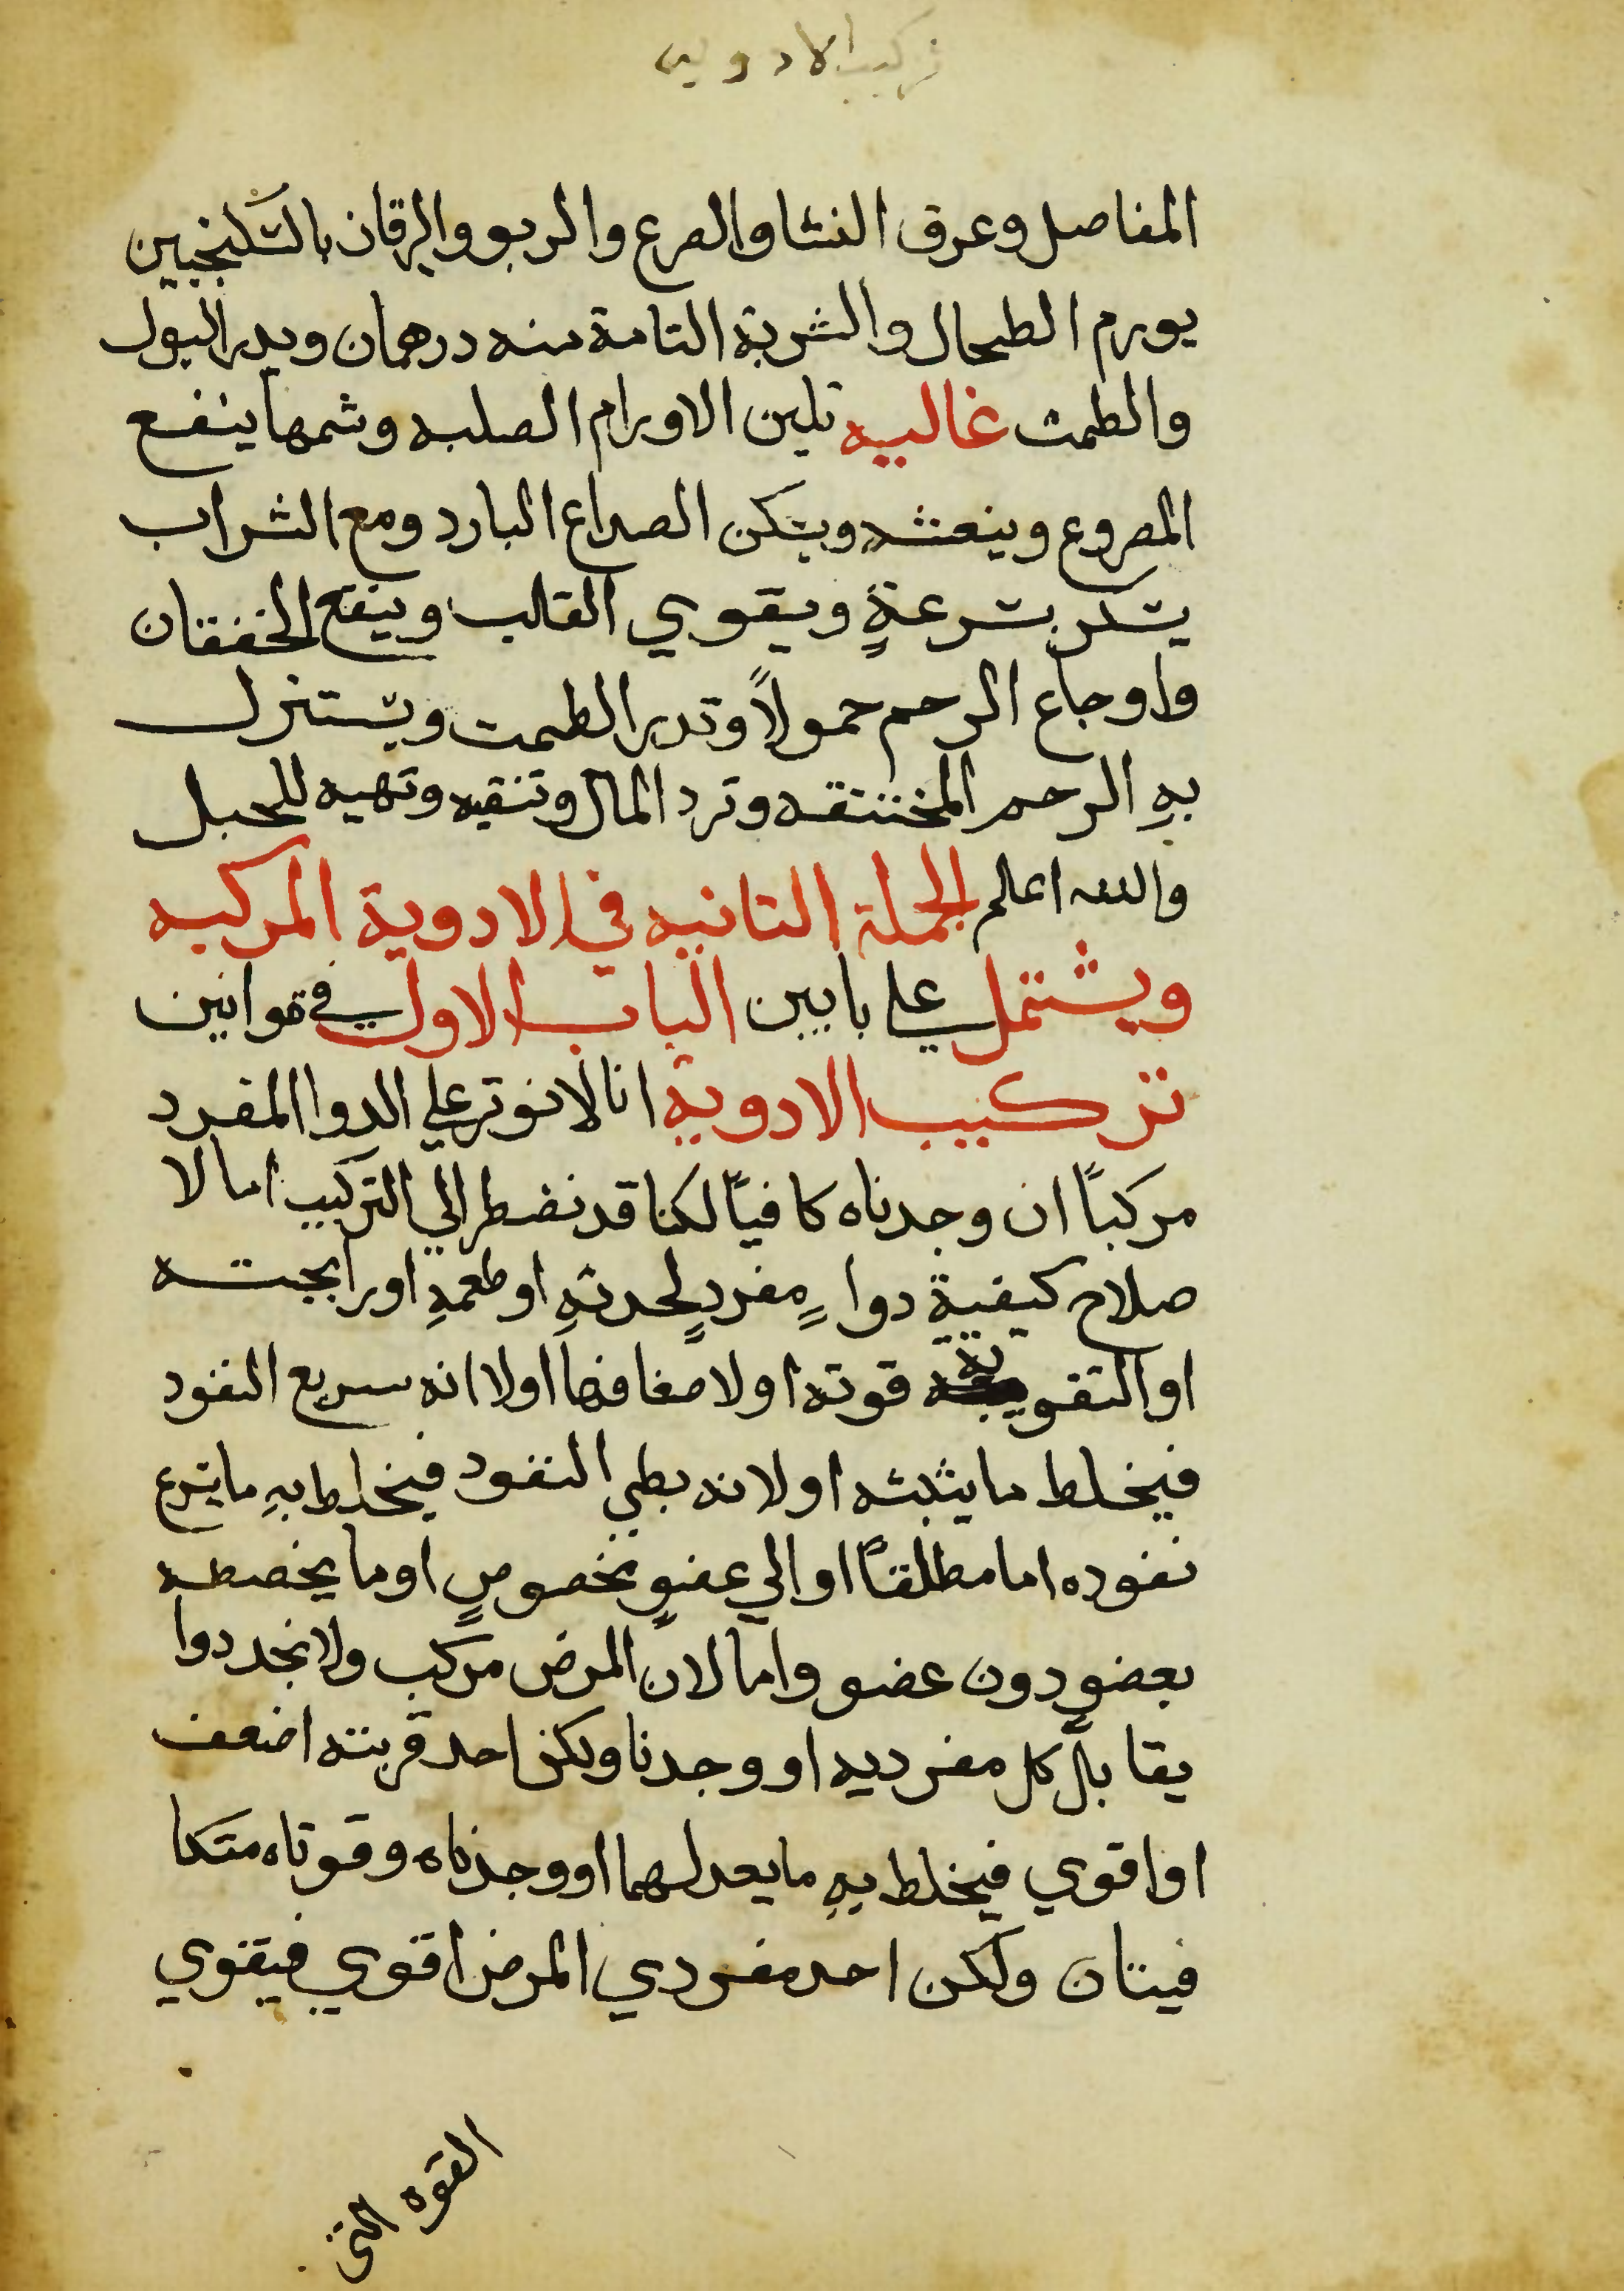 تركيب الادويه
المفاصل وعرق النسا والصرع والربو واليرقان بالسكنجبين
يورم الطحال والشربة التامة منه درهمان ويدر البول
والطمث غاليه تلين الاورام الصلبه وشمها ينفع
المصروع وينعشه ويسكن الصداع البارد ومع الشراب
يسكر بسرعةٍ ويقوي القلب وينفع الخفقان
واوجاع الرحم حمولاً وتدر الطمث ويستنزل
بهِ الرحم المختنقه وترد المال وتنقيه وتهيه للحبل
والله اعلم الجملة الثانيه في الادوية المركبه
ويشتمل علي بابين الباب الاول في قوانين
تركيب الادوية انا لا نوثر علي الدوا المفرد
مركباً ان وجدناه كافياً لكنا قد نضطر الي التركيب اما لا
صلاح كيفية دواءٍ مفردٍ لحدتهِ او طعمهِ او رايحته
او التقوية قوته او لا ضعافها او لا انه سريع النفود
فيخلط ما يثبته او لانه بطي النفود فيخلط بهِ ما يسرع
نفوده اما مطلقاً او الي عضوٍ مخصوصٍ او ما يخصصه
بعضوٍ دون عضو واما لان المرض مركب ولا نجد دوا
يقابل كل مفرديه او وجدنا ولكن احد قوبته اضعف
او اقوي فيخلط بهِ ما يعدلهما او وجدناه وقوتاه متكا
فيتان ولكن احد مفردي المرض اقوي فيقوي
القوه التي